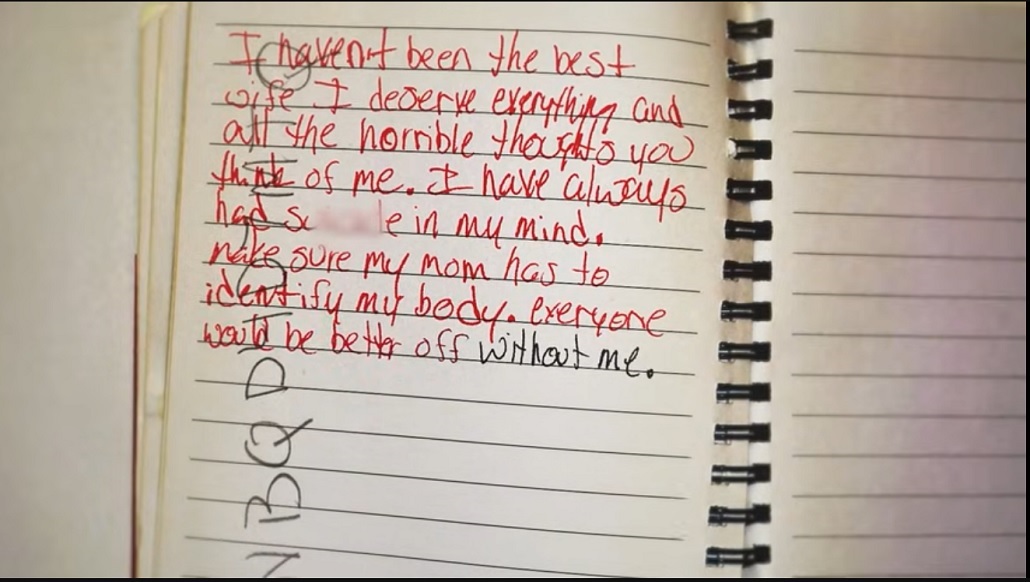 I haven't been the best
wife I deserve everything and
all the horrible thoughts you
think of me. I have always
had in my mind.
make sure my mom has to
identify my body. everyone
would be better off without me.
B Q D